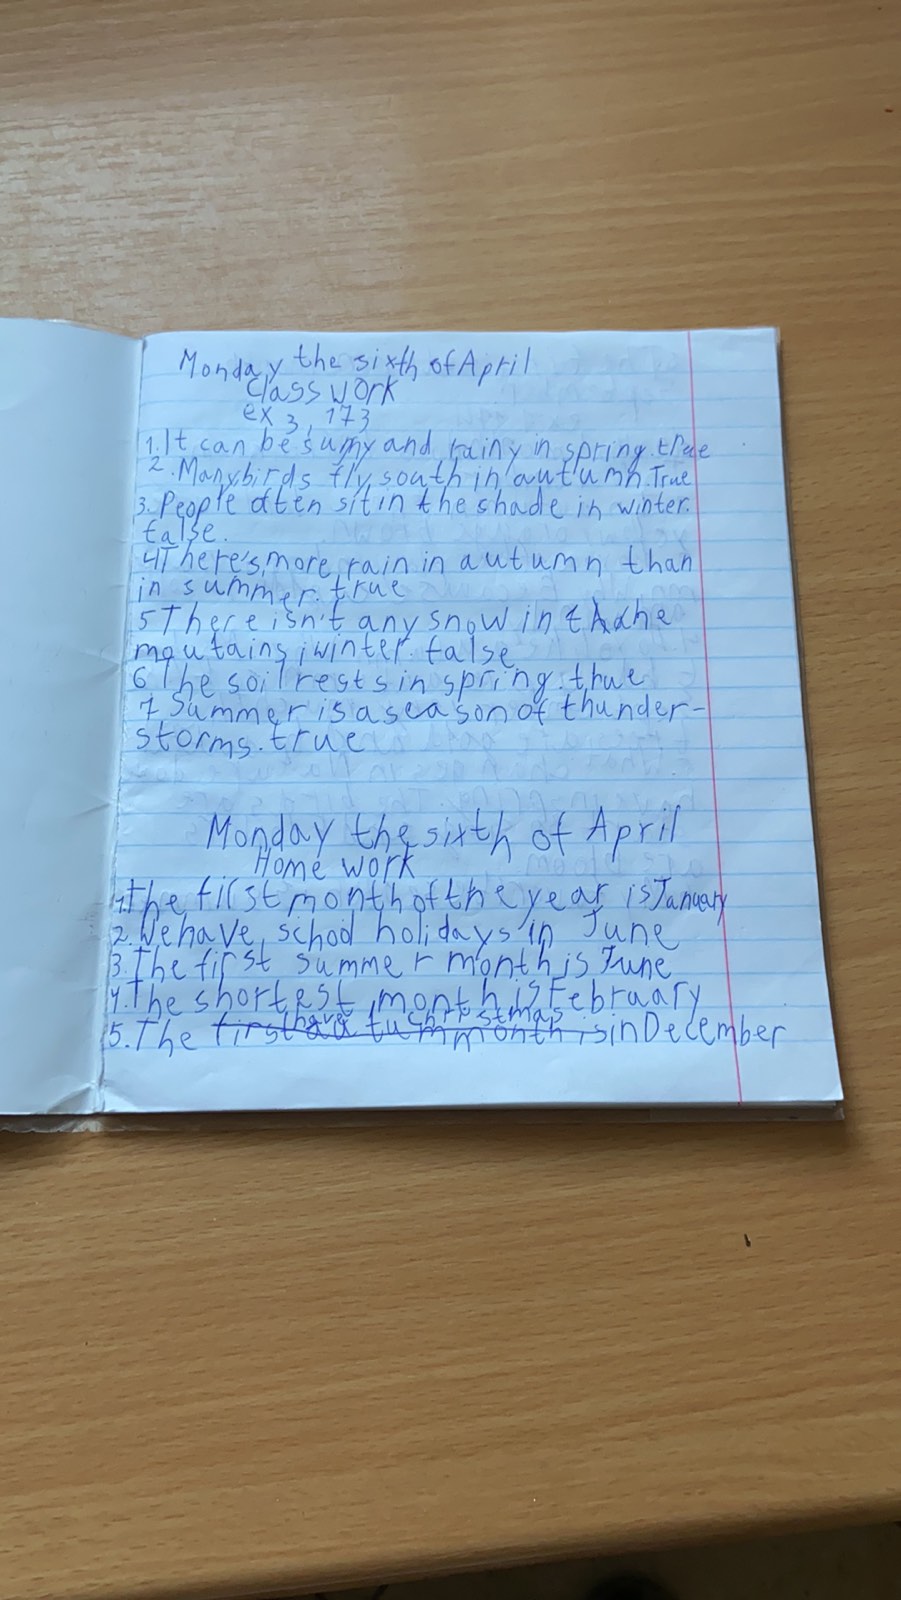 Monday the sixth of April
Class work
ex 3, 173
1. It can be sunny and rainy in spring. true
2. Many birds fly south in autumn. True
3. People often sit in the shade in winter.
false.
4 There's more rain in autumn than
in summer. true
5 There isn't any snow in the
moutains i winter. false
6 The soil rests in spring. true
7 Summer is a season of thunder-
storms. true
Monday the sixth of April
Home work
1. The first month of the year is January
2. We have school holidays in June
3. The first summer month is June
4. The shortest month is February
5. The have Christmas in December